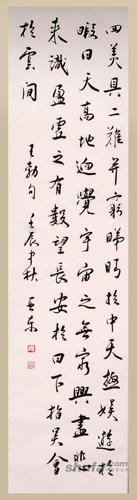 四美具二難并窮睇眄於中天極娛遊於
暇日天高地迥覺宇宙之無窮興盡悲
來識盈虛之有數望長安於日下指吳會
於雲間 王勃句 壬辰中秋